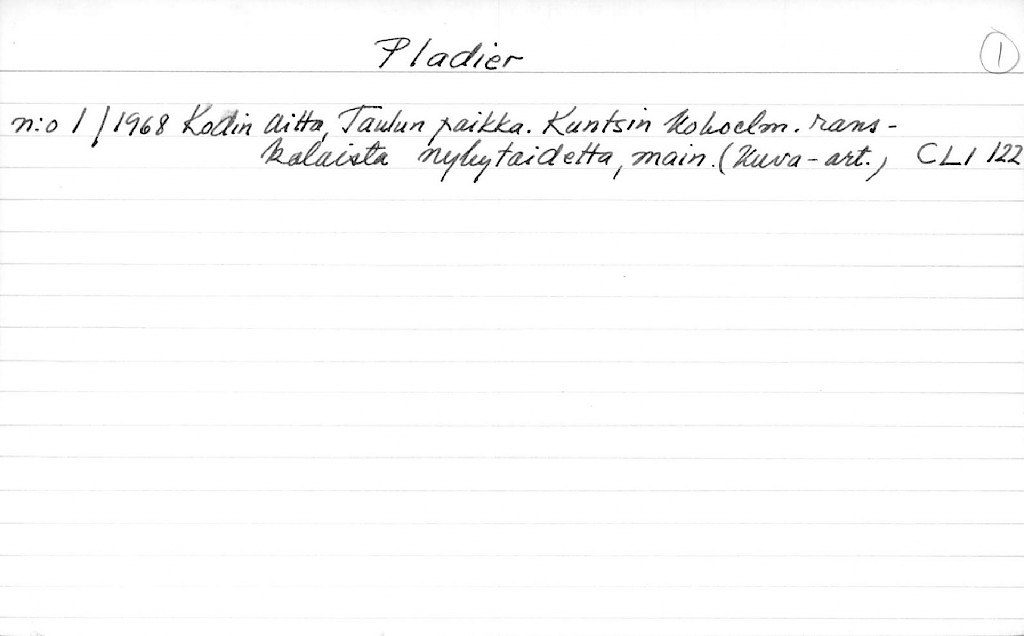 Pladier
1
n:o 1/1968 Kodin Aitta, Taulun paikka. Kuntsin kokoelm. rans-
kalaista nykytaidetta, main. (kuva-art.) CLI 122